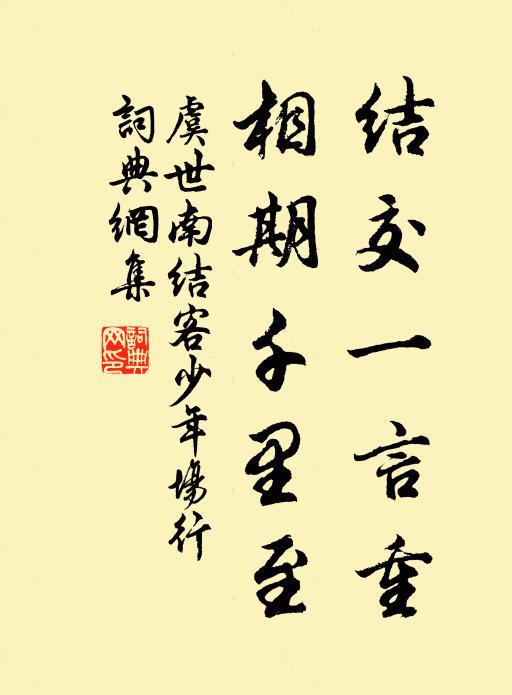 结交一言重
相期千里至
虞世南结客少年場行
詞典網集
詞典
网印